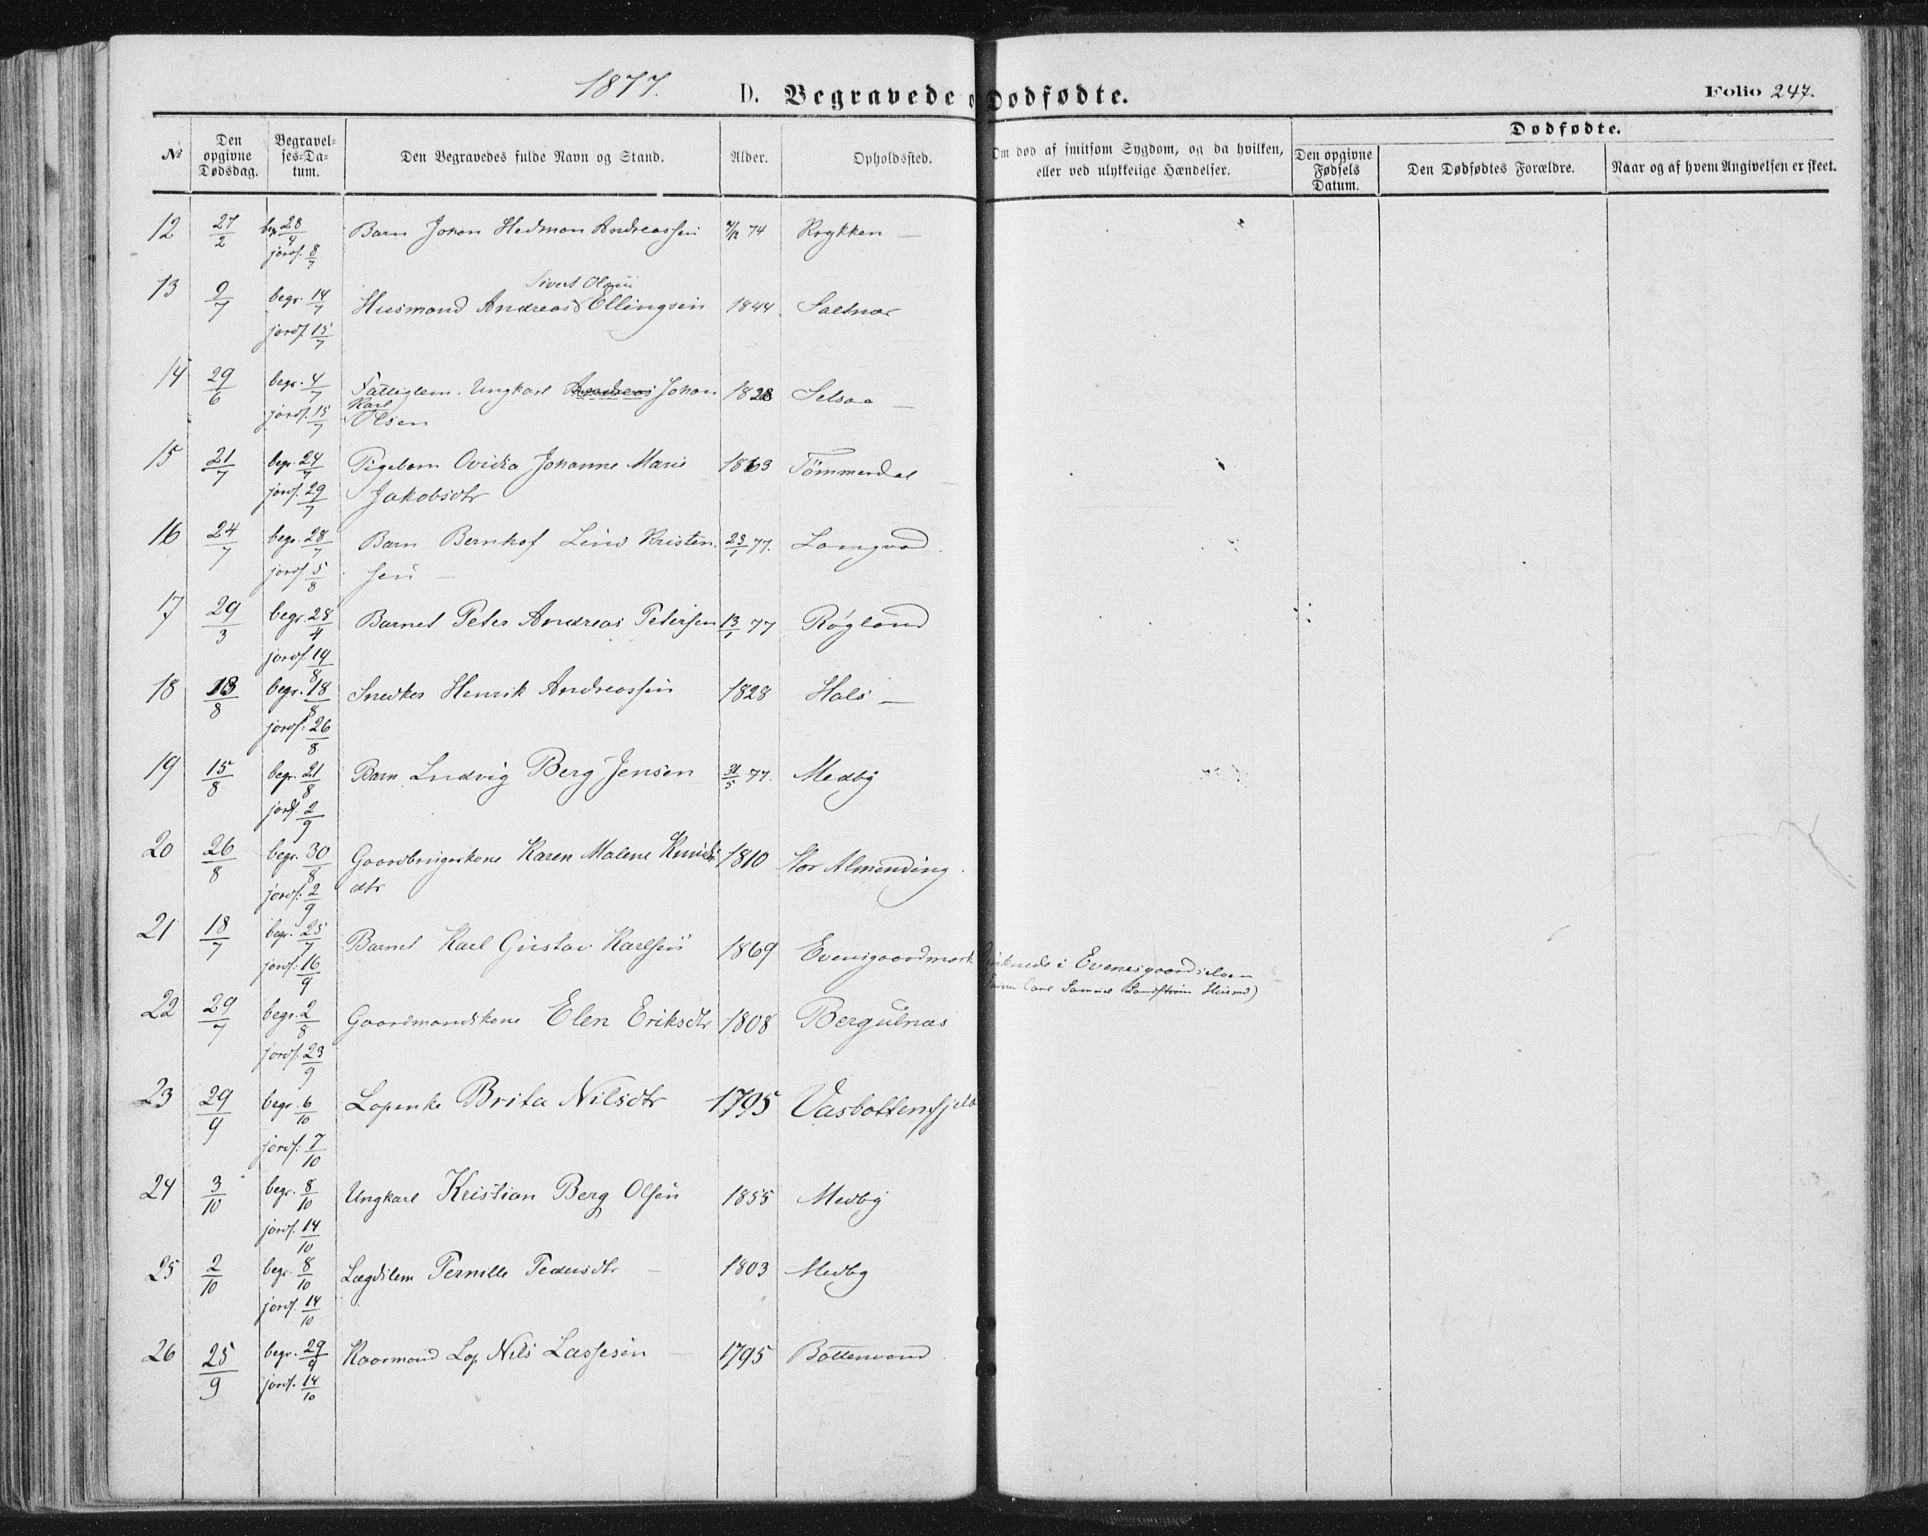 1877.
D. Begravede o Dødfødte.
Folio 247.
№
Den opgivne Dødsdag.
Begravelses-Datum.
Den Begravedes fulde Navn og Stand.
Alder.
Opholdssted.
Om død af smitsom Sygdom, og da hvilken, eller ved ulykkelige Hændelser.
Dødfødte.
Den opgivne Fødsels Datum.
Den Dødfødtes Forældre.
Naar og af hvem Angivelsen er skeet.
12 27/2 begr. 28/4 Barn Johan Hedman Andreassen 74 Rykken —
jordf. 8/7
Sivert Olaus
13 9/7 begr. 14/7 Husmand Andreas Ellingsen 1844 Saltnær
jordf. 15/7
14 29/6 begr. 4/7 Fattiglem. Ungkarl Andreas Johan 1828 Selsaa —
Karl
jordf. 15/7 Olsen
15 21/7 begr. 24/7 Pigebarn Ovidia Johanne Marie 1863 Tömmerdal
jordf. 29/7 Jakobsdtr
16 24/7 begr. 28/7 Barn Bernhof Lind Kristen 23/1 77. Langvad
jordf. 5/8 sen —
17 29/3 begr. 28/4 Barnet Peter Andreas Petersen 13/1 77 Røgland
jordf. 19/8
18 13/8 begr. 18/8 Snedker Henrik Andreassen 1828 Hals —
jordf. 26/8
19 15/8 begr. 21/8 Barn Ludvig Berg Jensen 31/5 77. Medby
jordf. 2/9
20 26/8 begr. 30/8 Gaardbrugerkone Karen Malene Knuds 1810 Stor Almending.
jordf. 2/9 dtr
21 18/7 begr. 25/7 Barnet Karl Gustav Karlsen 1869 Evenesgaardmark Druknede i Evenesgaardselven
jordf. 16/9 (Faderen Carl Samuel Landstrøm Husmd)
22 29/7 begr. 2/8 Gaardmandskone Elen Eriksdtr 1808 Bergulnæs
jordf. 23/9
23 29/9 begr. 6/10 Lapenke Brita Nilsdtr 1795 Vasbottenfjeld
jordf. 7/10
24 3/10 begr. 8/10 Ungkarl Kristian Berg Olsen 1855 Medby
jordf. 14/10
25 2/10 begr. 8/10 Lægdslem Pernille Pedersdtr — 1803 Medby
jordf. 14/10
26 25/9 begr. 29/9 Kaarmand Lap Nils Lassesen — 1795 Bottenvand.
jordf. 14/10